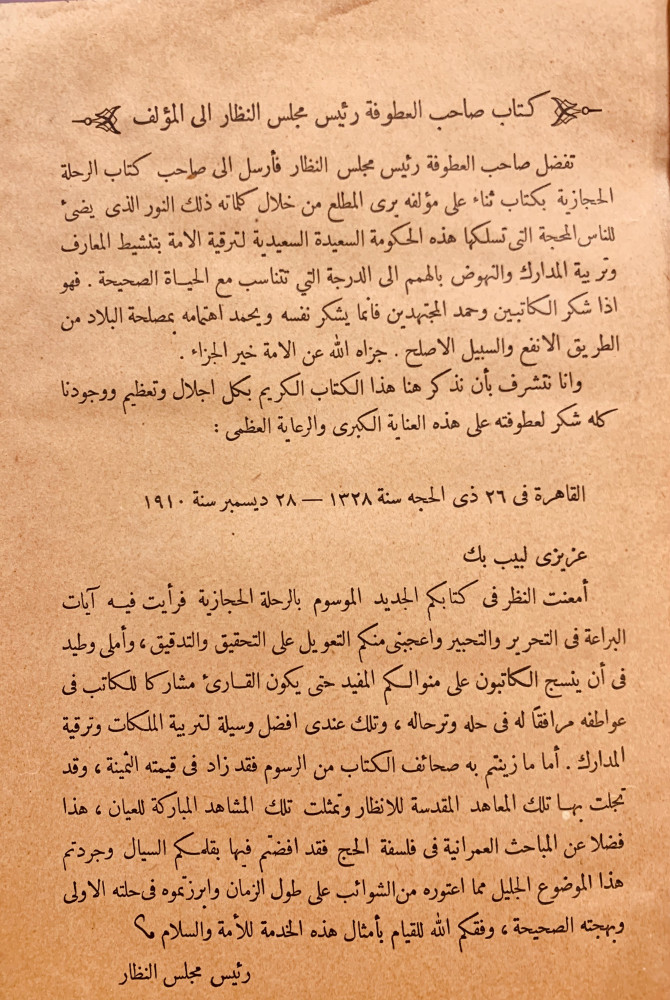 كتاب صاحب العطوفة رئيس مجلس النظار الى المؤلف
تفضل صاحب العطوفة رئيس مجلس النظار فأرسل الى صاحب كتاب الرحلة
الحجازية بكتاب ثناء على مؤلفه يرى المطلع من خلال كلماته ذلك النور الذى يضئ
للناس المحجة التى تسلكها هذه الحكومة السعيدة السعيدية لترقية الامة بتنشيط المعارف
وتربية المدارك والنهوض بالهمم الى الدرجة التي تتناسب مع الحياة الصحيحة . فهو
اذا شكر الكاتبين وحمد المجتهدين فانما يشكر نفسه ويحمد اهتمامه بمصلحة البلاد من
الطريق الانفع والسبيل الاصلح . جزاه الله عن الامة خير الجزاء .
وانا نتشرف بأن نذكر هنا هذا الكتاب الكريم بكل اجلال وتعظيم ووجودنا
كله شكر لعطوفته على هذه العناية الكبرى والرعاية العظمى :
القاهرة فى ٢٦ ذى الحجه سنة ١٣٢٨ — ٢٨ ديسمبر سنة ١٩١٠
عزيزى لبيب بك
أمعنت النظر فى كتابكم الجديد الموسوم بالرحلة الحجازية فرأيت فيه آيات
البراعة فى التحرير والتحبير واعجبنى منكم التعويل على التحقيق والتدقيق ، وأملى وطيد
فى أن ينسج الكاتبون على منوالكم المفيد حتى يكون القارئ مشاركا للكاتب فى
عواطفه مرافقًا له فى حله وترحاله ، وتلك عندى افضل وسيلة لتربية الملكات وترقية
المدارك . أما ما زينتم به صحائف الكتاب من الرسوم فقد زاد فى قيمته الثمينة ، وقد
تجلت بها تلك المعاهد المقدسة للانظار وتمثلت تلك المشاهد المباركة للعيان ، هذا
فضلا عن المباحث العمرانية فى فلسفة الحج فقد افضتم فيها بقلمكم السيال وجردتم
هذا الموضوع الجليل مما اعتوره من الشوائب على طول الزمان وابرزتموه فى حلته الاولى
وبهجته الصحيحة ، وفقكم الله للقيام بأمثال هذه الخدمة للأمة والسلام
رئيس مجلس النظار